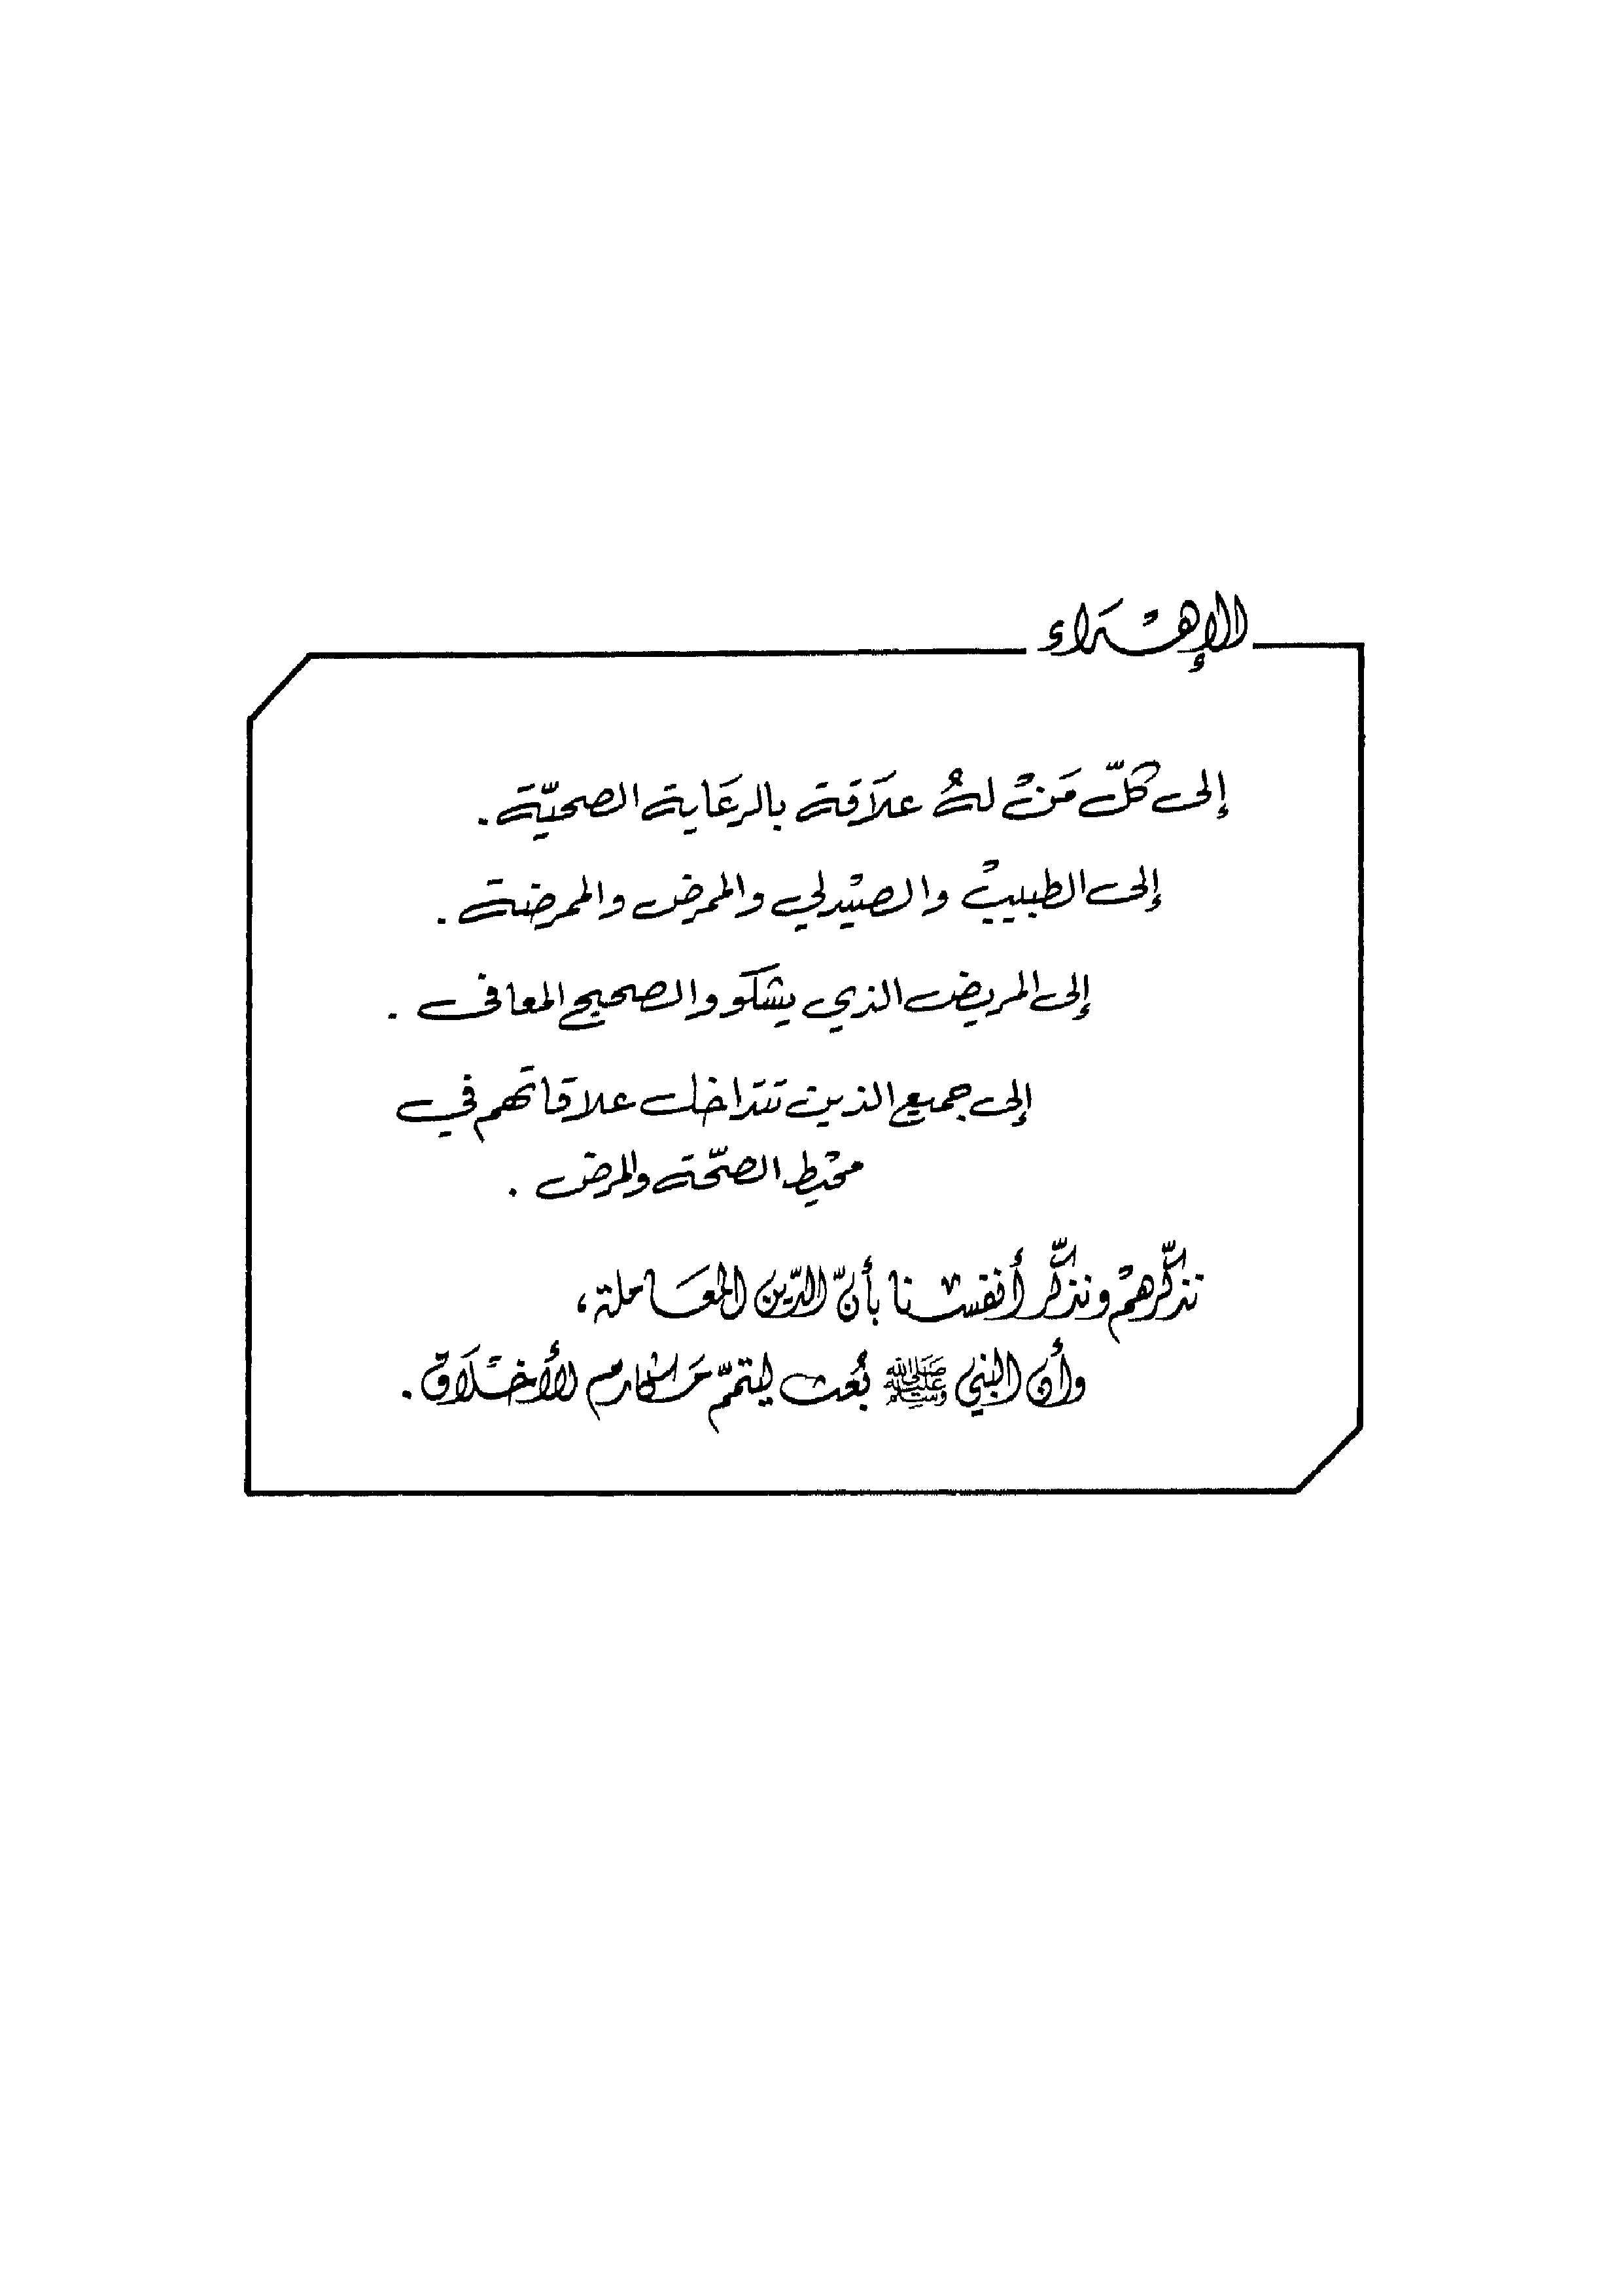 الإهْدَاء
إلى كلّ مَنْ لهُ علاَقة بالرعَاية الصحيّة .
إلى الطبيبْ والصيْدلي والممرض والممرضة .
إلى المريض الذي يشكو والصحيح المعافى .
إلى جميع الذين تتداخل علاقاتهم في
محيْط الصحّة والمرض .
نذكّرهمْ ونذكّر أنفسنا بأنّ الدّين المعَاملة،
وأن النبي ﷺ بُعث ليتمّم مَكارم الأخْلَاق .